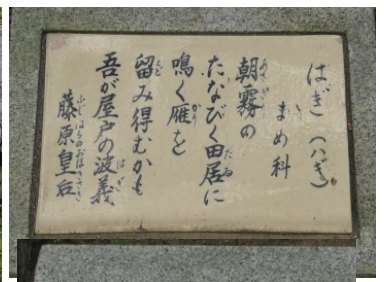 はぎ（ハギ）
まめ科
朝霧の
たなびく田居に
鳴く雁を
留み得むかも
吾が屋戸の波義
藤原皇后